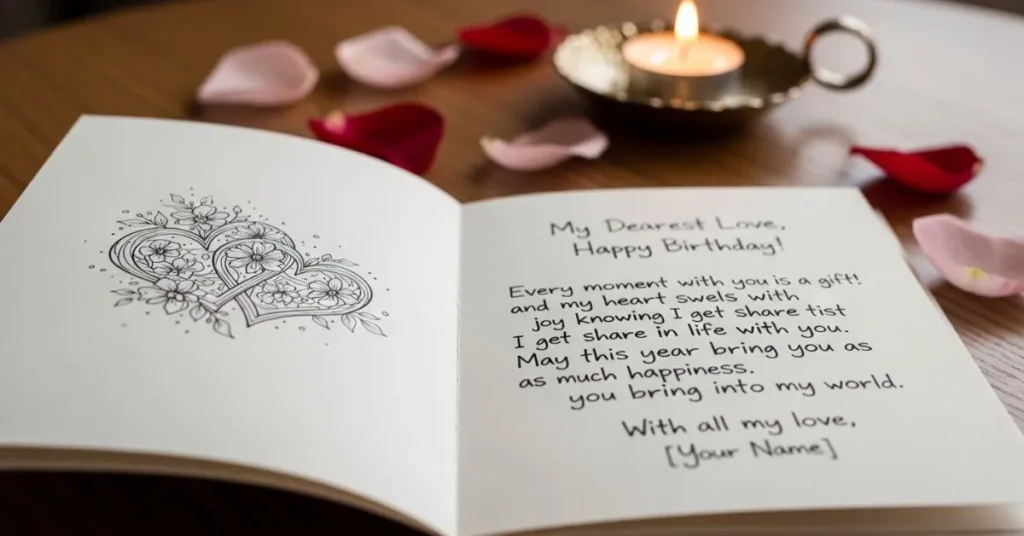 My Dearest Love,
Happy Birthday!
Every moment with you is a gift!
and my heart swels with
joy knowing I get share tist
I get share in life with you.
May this year bring you as
as much happiness.
you bring into my world.
With all my love,
[Your Name]